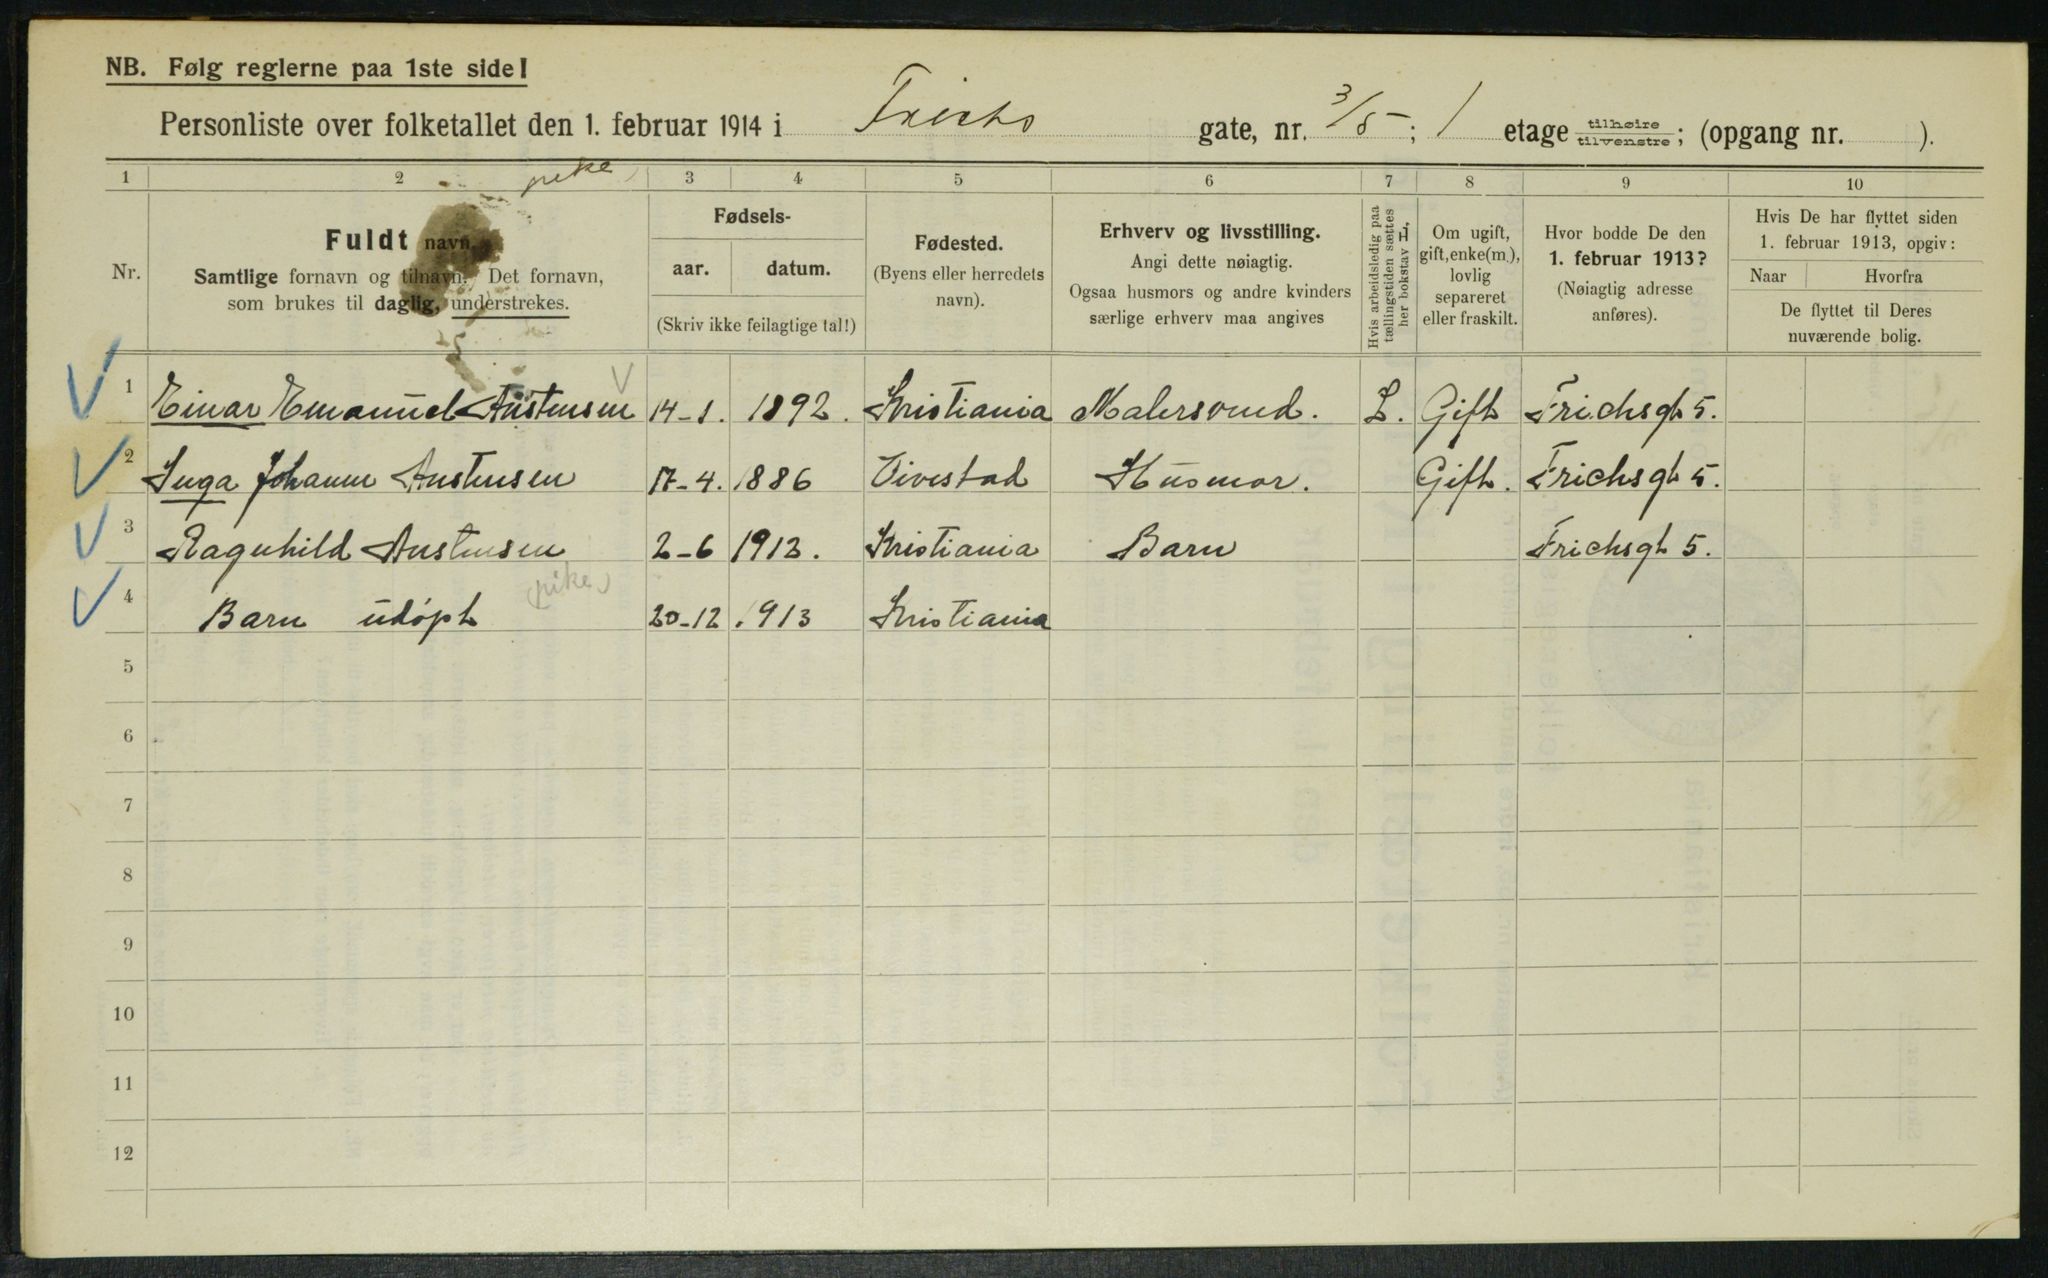 NB. Følg reglerne paa 1ste side!
Personliste over folketallet den 1. februar 1914 i Frichs gate, nr. 3/5; 1 etage tilhøire tilvenstre; (opgang nr. ).
pike
1 2 3 4 5 6 7 8 9 10
Nr.
Fuldt navn.
Samtlige fornavn og tilnavn. Det fornavn,
som brukes til daglig, understrekes.
Fødsels-
aar. datum.
(Skriv ikke feilagtige tal!)
Fødested.
(Byens eller herredets
navn).
Erhverv og livsstilling.
Angi dette nøiagtig.
Ogsaa husmors og andre kvinders
særlige erhverv maa angives
Hvis arbeidsledig paa
tællingstiden sættes
her bokstav L.
Om ugift,
gift, enke(m.),
lovlig
separeret
eller fraskilt.
Hvor bodde De den
1. februar 1913?
(Nøiagtig adresse
anføres).
Hvis De har flyttet siden
1. februar 1913, opgiv:
Naar Hvorfra
De flyttet til Deres
nuværende bolig.
1 Einar Emanuel Austensen 14-1. 1892. Kristiania Malersvend. L. Gift Frichsgt 5.
2 Inga Johanne Austensen 17-4. 1886 Vivestad Husmor. Gift. Frichsgt 5.
3 Ragnhild Austensen 2-6 1912. Kristiania Barn Frichsgt 5.
4 Barn udøpt pike 20-12 1913 Kristiania
5
6
7
8
9
10
11
12